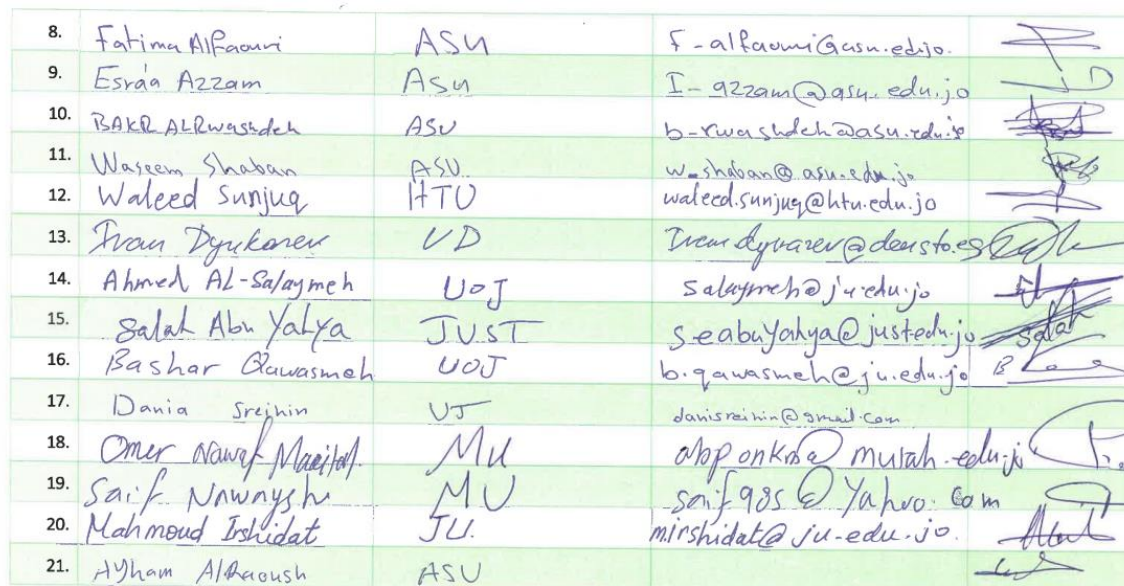 8. Fatima Alfaouri ASU f-alfaouri@asu.edu.jo.
9. Esra'a Azzam ASU I-azzam@asu.edu.jo
10. BAKR ALRwashdeh ASU b-rwashdeh@asu.edu.jo
11. Waseem Shaban ASU. w_shaban@asu.edu.jo
12. Waleed Sunjuq HTU waleed.sunjuq@htu.edu.jo
13. Ivan Dyukarev UD
14. Ahmed AL-Salaymeh UOJ salaymeh@ju.edu.jo
15. Salah Abu Yahya JUST seabuyahya@just.edu.jo Salah
16. Bashar Qawasmeh UOJ b.qawasmeh@ju.edu.jo
17. Dania Sreihin UJ danisreihin@gmail.com
18. Omer Nawaf MU
19. Saif MU saif985@Yahoo.Com
20. Mahmoud Irshidat JU. mirshidat@ju.edu.jo.
21. Ayham AlRaoush ASU